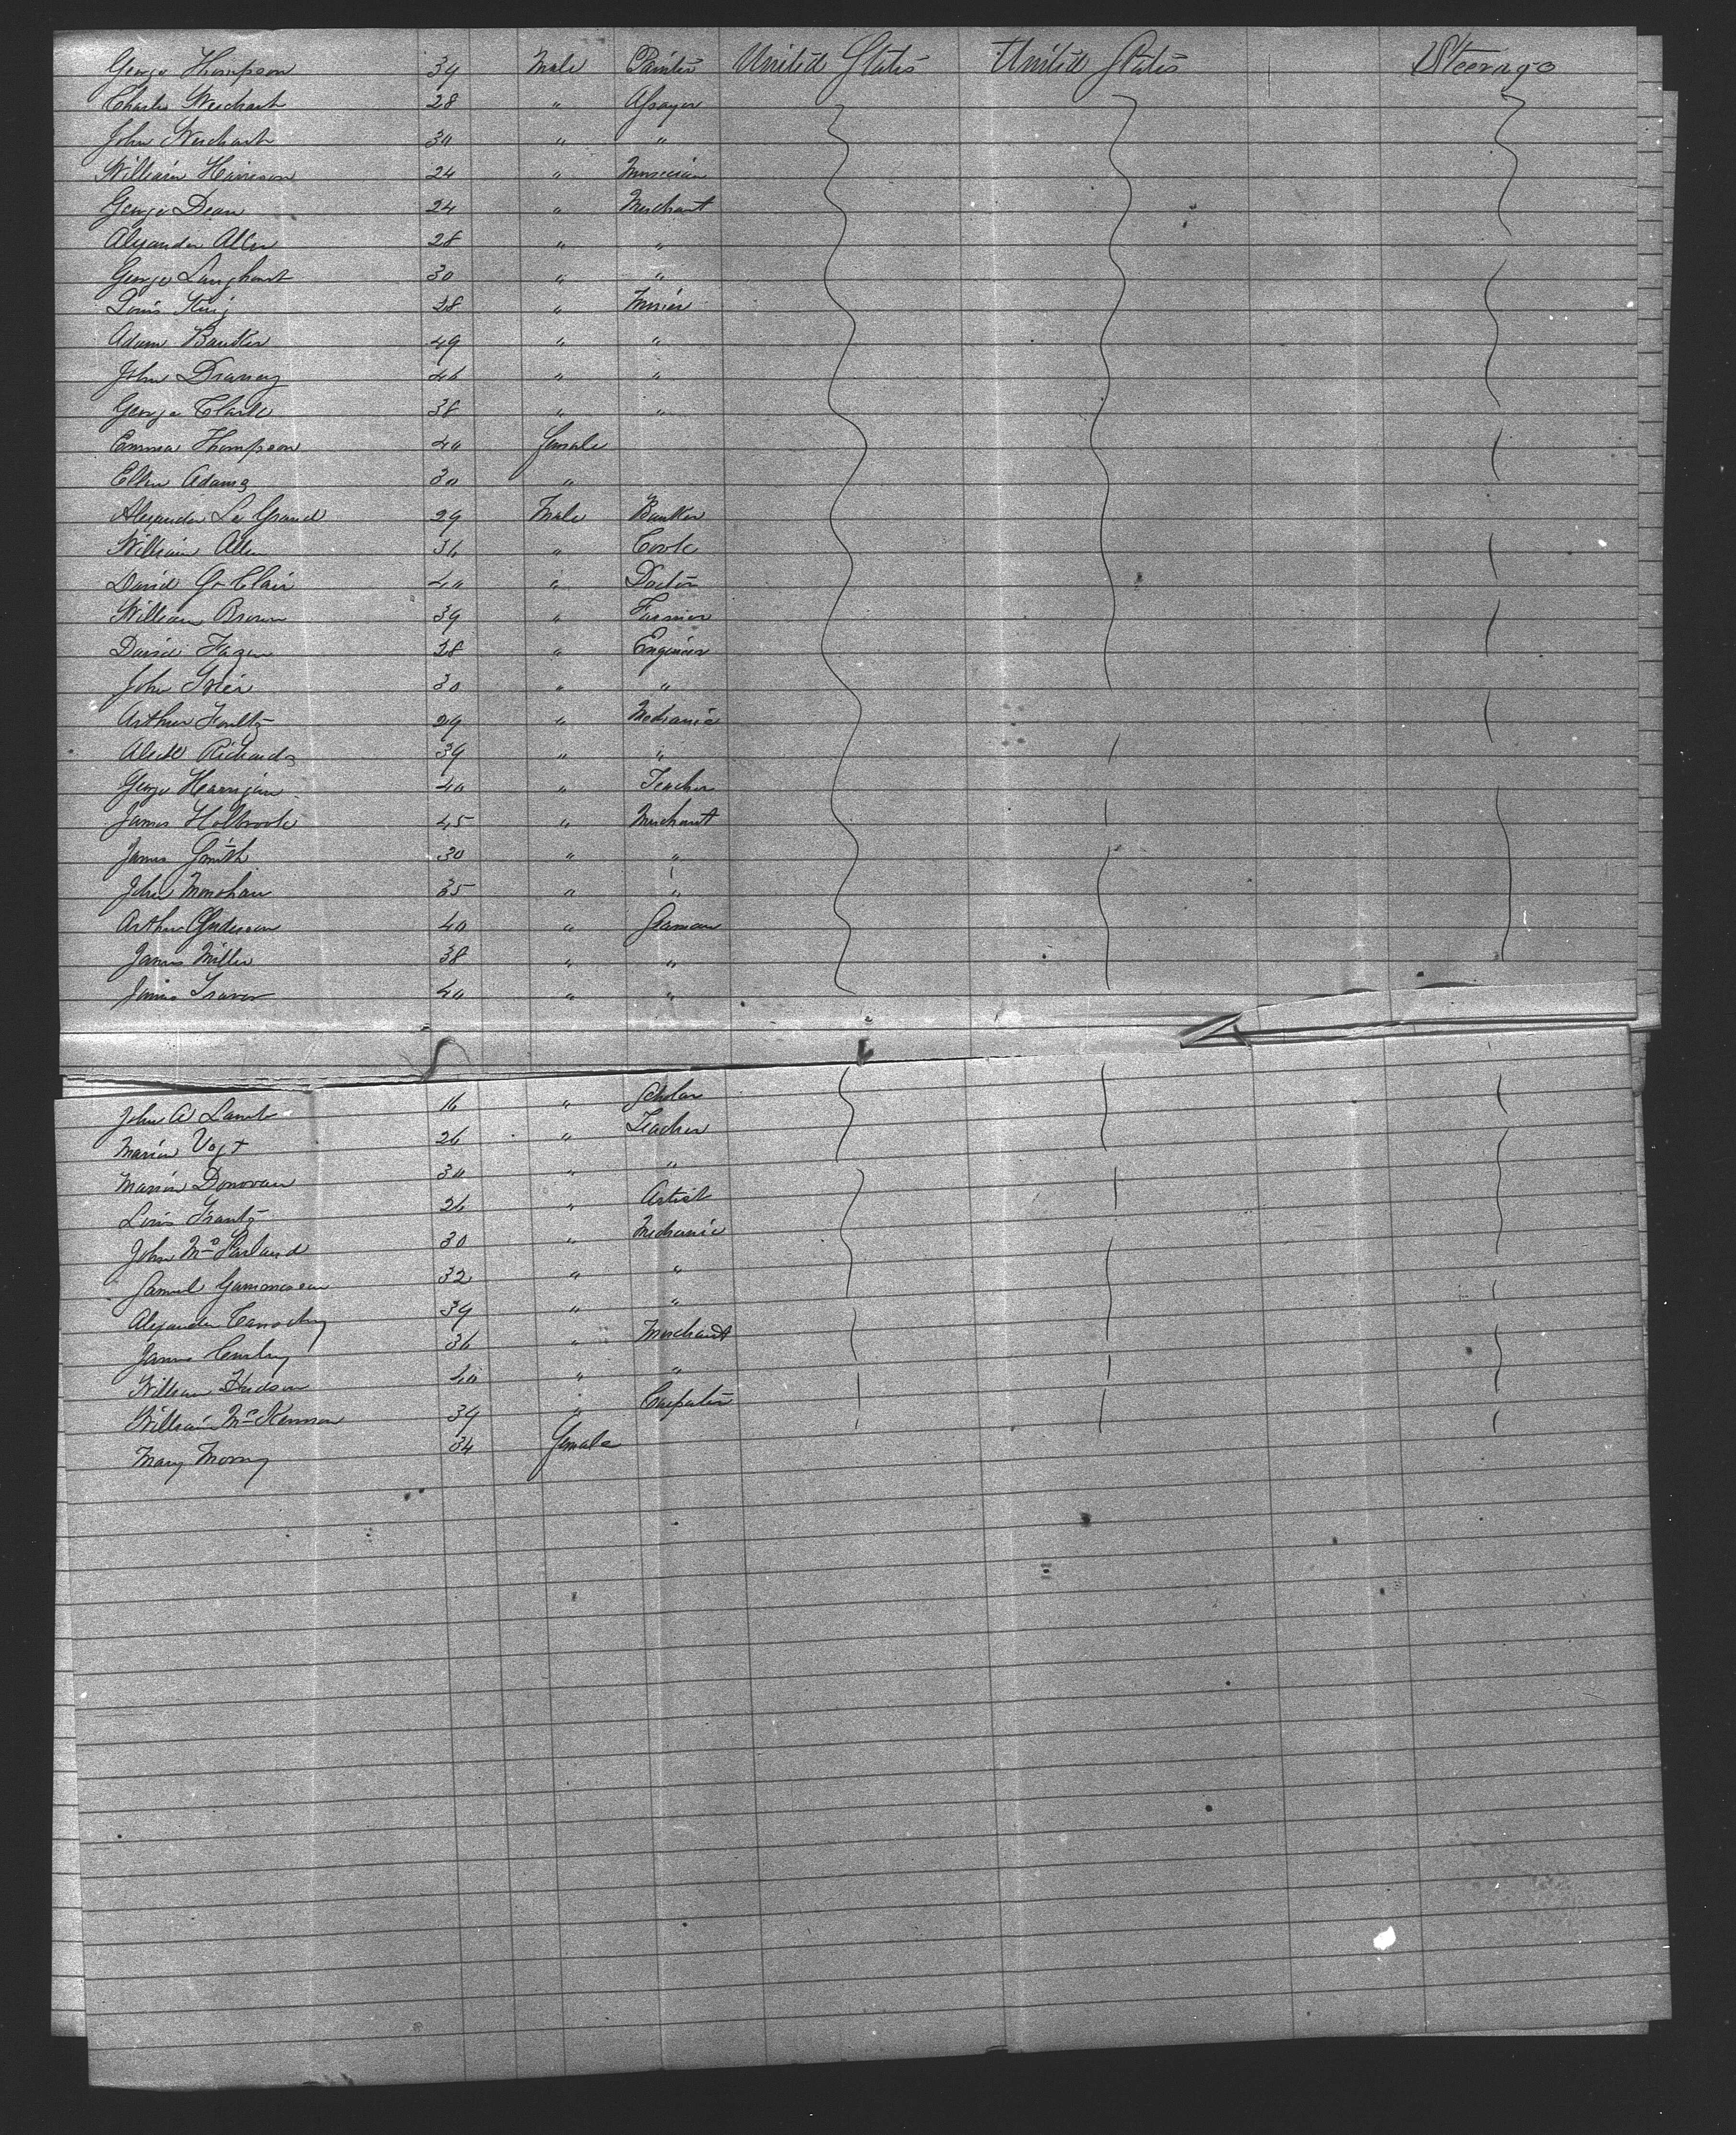 George Thompson 34 Male Painter United States United States Steerage
Charles Weichart 28 " Assayer
John Weichart 30 " "
William Harrison 24 " Musician
George Dean 24 " Merchant
Alexander Allen 28 " "
George Langhorst 30 " "
Louis King 28 " Miner
Adam Banker 49 " "
John Draney 46 " "
George Clark 38 " "
Emma Thompson 40 Female
Ellen Adams 30 "
Alexander Le Grand 29 Male Banker
William Allen 36 " Cook
David St Clair 40 " Doctor
William Brown 39 " Farmer
David Fagen 28 " Engineer
John Grier 30 " "
Arthur Foultz 29 " Mechanic
Richards 39 " "
George Harrigan 40 " Teacher
James Holbrook 45 " Merchant
James Smith 30 " "
John Monohan 35 " "
Arthur Anderson 40 " Seaman
James Miller 38 " "
James Travor 40 " "
John A Lamb 16 " Scholar
Marion Vogt 26 " Teacher
Marion Donovan 30 " "
Louis Frantz 26 " Artist
John McFarland 30 " Mechanic
Samuel 32 " "
Alexander 39 " "
James 36 " Merchant
William Hudson 40 " "
William McKennon 39 " Carpenter
Mary 34 Female